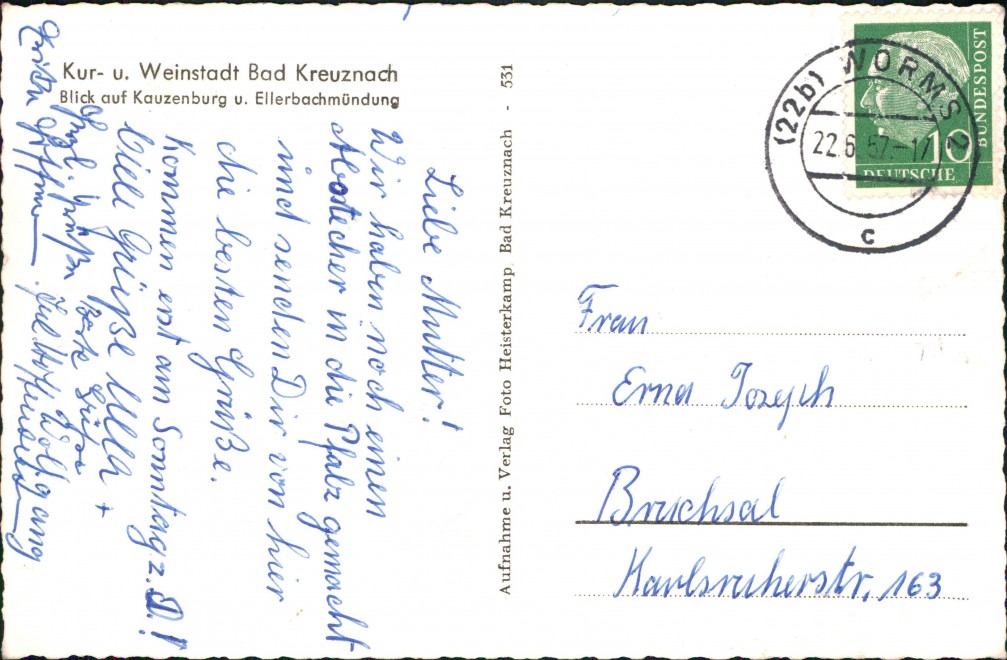 Kur- u. Weinstadt Bad Kreuznach
Blick auf Kauzenburg u. Ellerbachmündung
Liebe Mutter!
Wir haben noch einen
Abstecher in die Pfalz gemacht
und senden Dir von hier
die besten Grüße.
Kommen erst am Sonntag z. D.!
Viele Grüße Ulla +
Wolfgang
Beste Grüße
Aufnahme u. Verlag Foto Heisterkamp, Bad Kreuznach - 531
(22b) WORMS 2
22.6.57.-17
c
10
DEUTSCHE
BUNDESPOST
Frau
Erna Joseph
Bruchsal
Karlsruherstr. 163